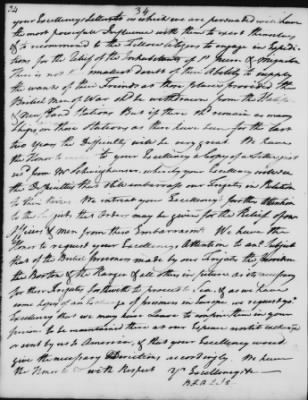 24 34
your Excellency's Letters to which we are persuaded will have
the most powerful Influence with them to exert themselves
& to recommend to the Fellow Citizens to engage in Expedi-
tions for the Relief of the Inhabitants of St. and Miquelon
There is not smallest doubt of their Ability to supply
the wants of their Friends at those places provided the
British Men of War should be withdrawn from the
& New Found land Stations But if there remain as many
Ships on those Stations as there have been for the last
two Years the Difficulty will be very great. We have
the Honor to to your Excellency a Copy of a Letter just
us from Mr. Schweighauser whereby your Excellency will see
the Difficulties that still embarrass our Frigates in Relation
to their . We intreat your Excellency's further Attention
to this Subject, that Orders may be given for the Relief of our
Officers & men from their Embarrassment. We have the
Honor to request your Excellency's Attention to an Subject
that of the British Prisoners made by our Frigates the
the Boston & the Ranger & all others in future. as it is necessary
for these Frigates forthwith to proceed to Sea, & as we have
some hopes of an Exchange of prisoners in Europe we request your
Excellency that we may have Leave to imprison them in your
prisons to be maintained there at our Expence until exchanged
or sent by us to America, & that your Excellency would
give the necessary Directions accordingly. We have
the Honor to with Respect Yr Excellency's